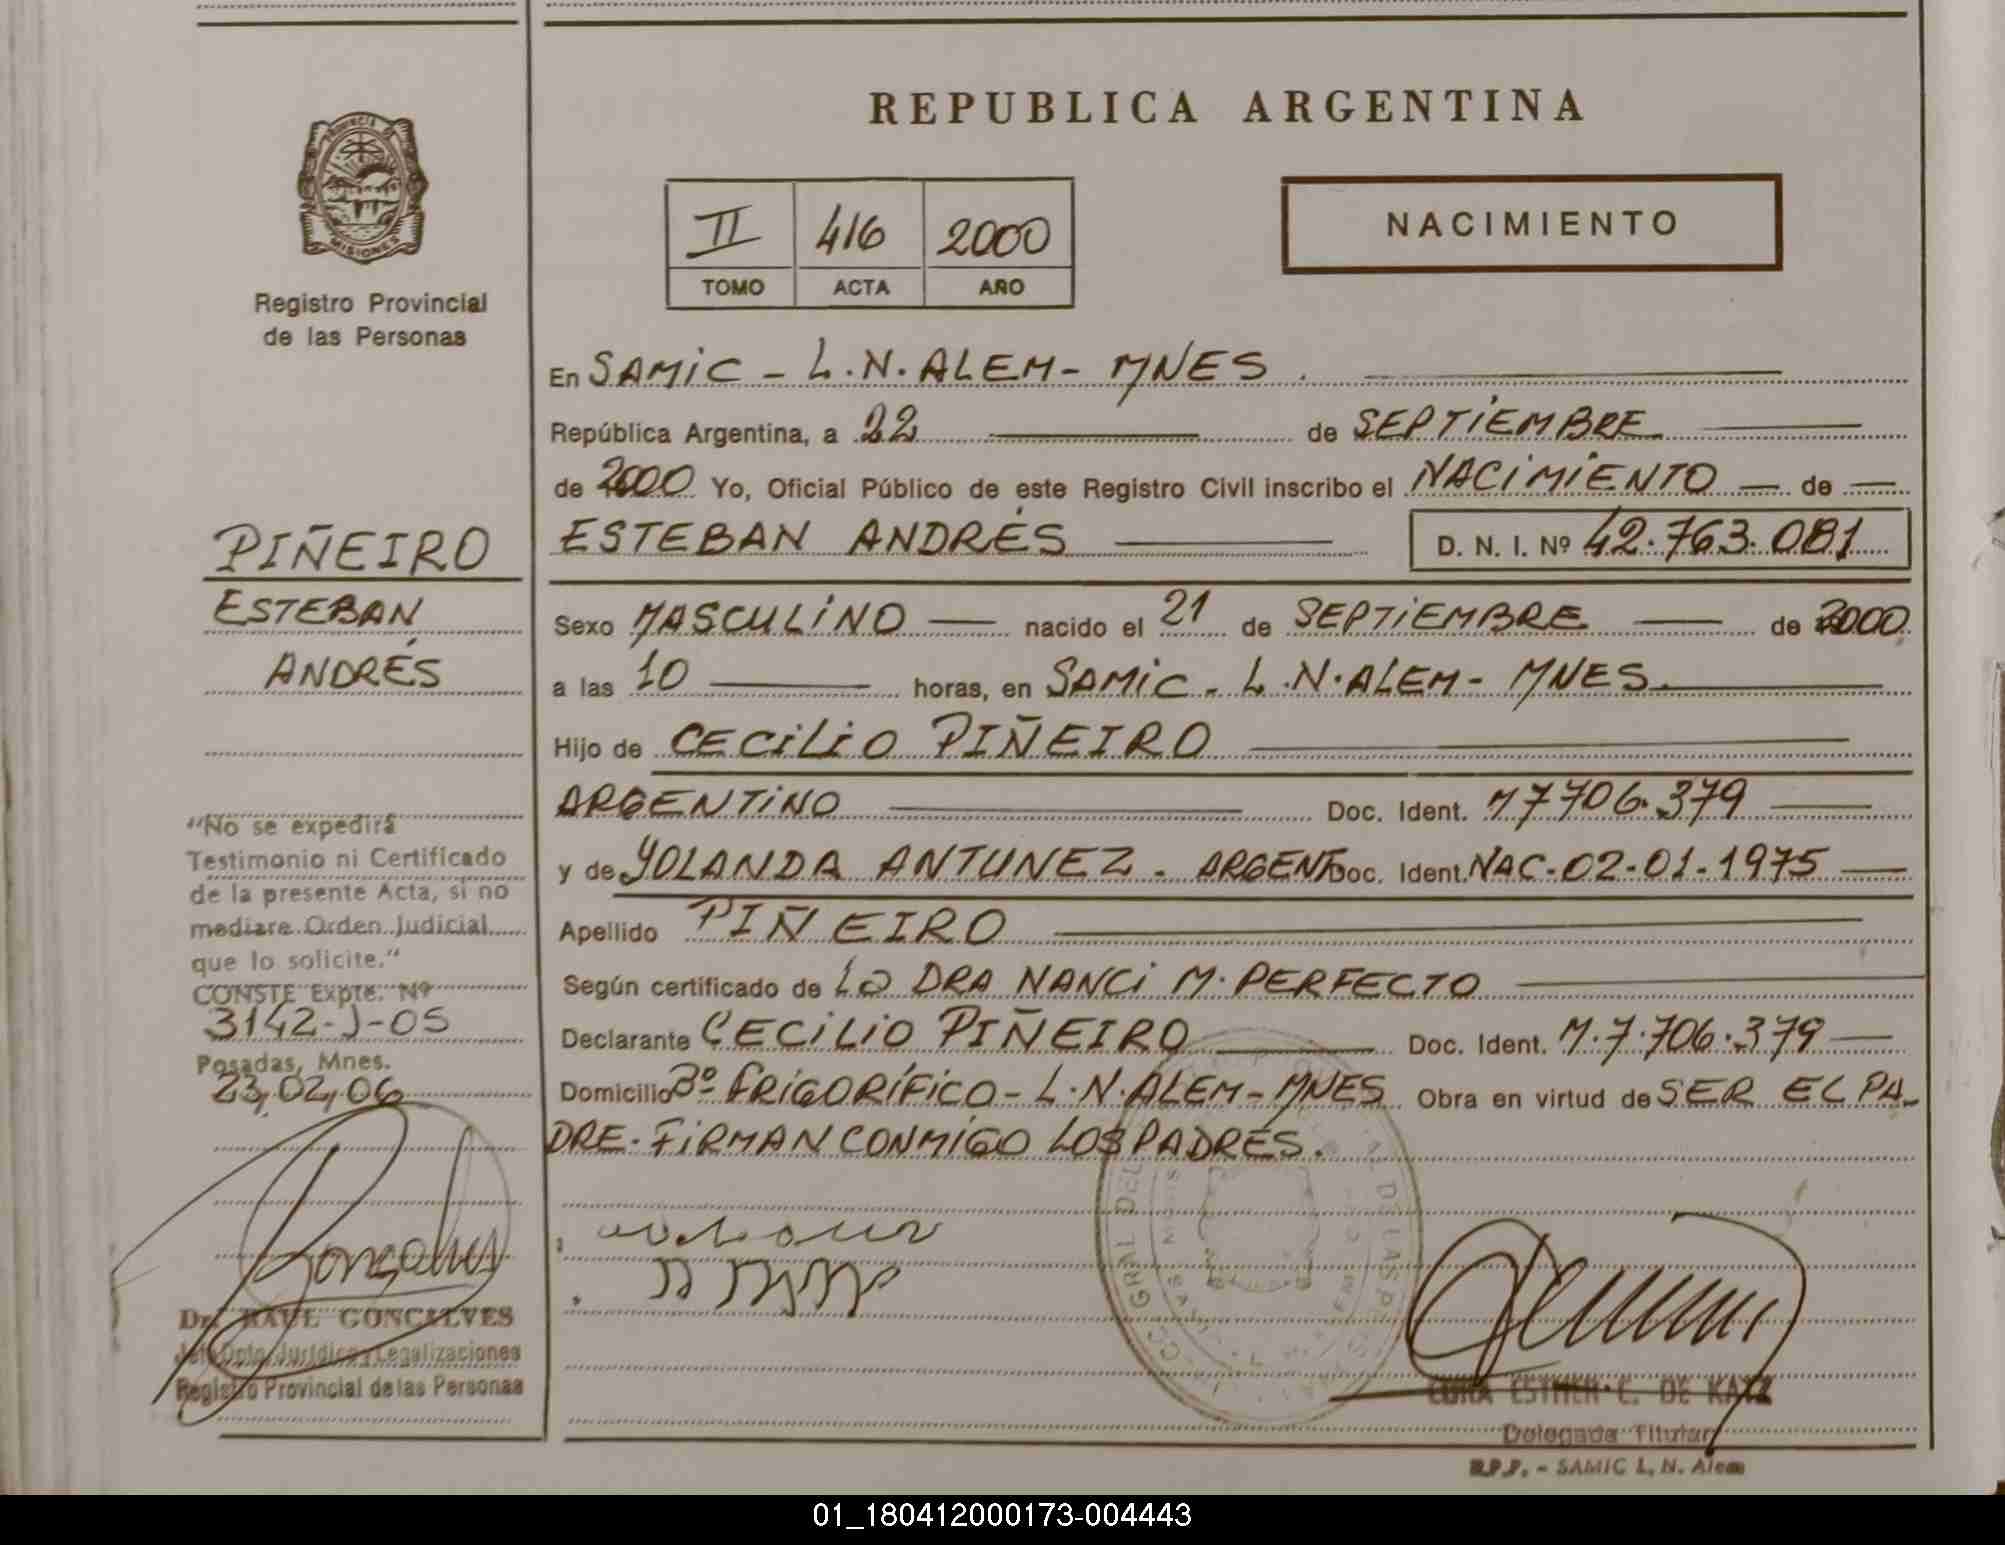 REPUBLICA ARGENTINA
PROVINCIA DE
MISIONES
Registro Provincial
de las Personas
II 416 2000
TOMO ACTA AÑO
NACIMIENTO
En SAMIC - L.N. ALEM - MNES.
República Argentina, a 22 de SEPTIEMBRE
de 2000 Yo, Oficial Público de este Registro Civil inscribo el NACIMIENTO de
ESTEBAN ANDRÉS D. N. I. Nº 42.763.081
Sexo MASCULINO nacido el 21 de SEPTIEMBRE de 2000
a las 10 horas, en SAMIC - L.N. ALEM - MNES.
Hijo de CECILIO PIÑEIRO
ARGENTINO Doc. Ident. M 7706.379
y de YOLANDA ANTUNEZ - ARGENT Doc. Ident. NAC-02-01-1975
Apellido PIÑEIRO
Según certificado de La DRA NANCI M. PERFECTO
Declarante CECILIO PIÑEIRO Doc. Ident. M.7.706.379
Domicilio Bº FRIGORÍFICO - L.N. ALEM - MNES Obra en virtud de SER EL PA-
DRE. FIRMAN CONMIGO LOS PADRES.
PIÑEIRO
ESTEBAN
ANDRÉS
"No se expedirá
Testimonio ni Certificado
de la presente Acta, si no
mediare Orden Judicial
que lo solicite."
CONSTE Expte. Nº
3142-J-05
Posadas, Mnes.
23,02,06
Dr. RAUL GONCALVES
Jefe Dpto. Jurídico y Legalizaciones
Registro Provincial de las Personas
GRAL DEL
DE LAS
ESTHER C. DE KATZ
Delegada Titular
R.P.P. - SAMIC L. N. Alem
01_180412000173-004443